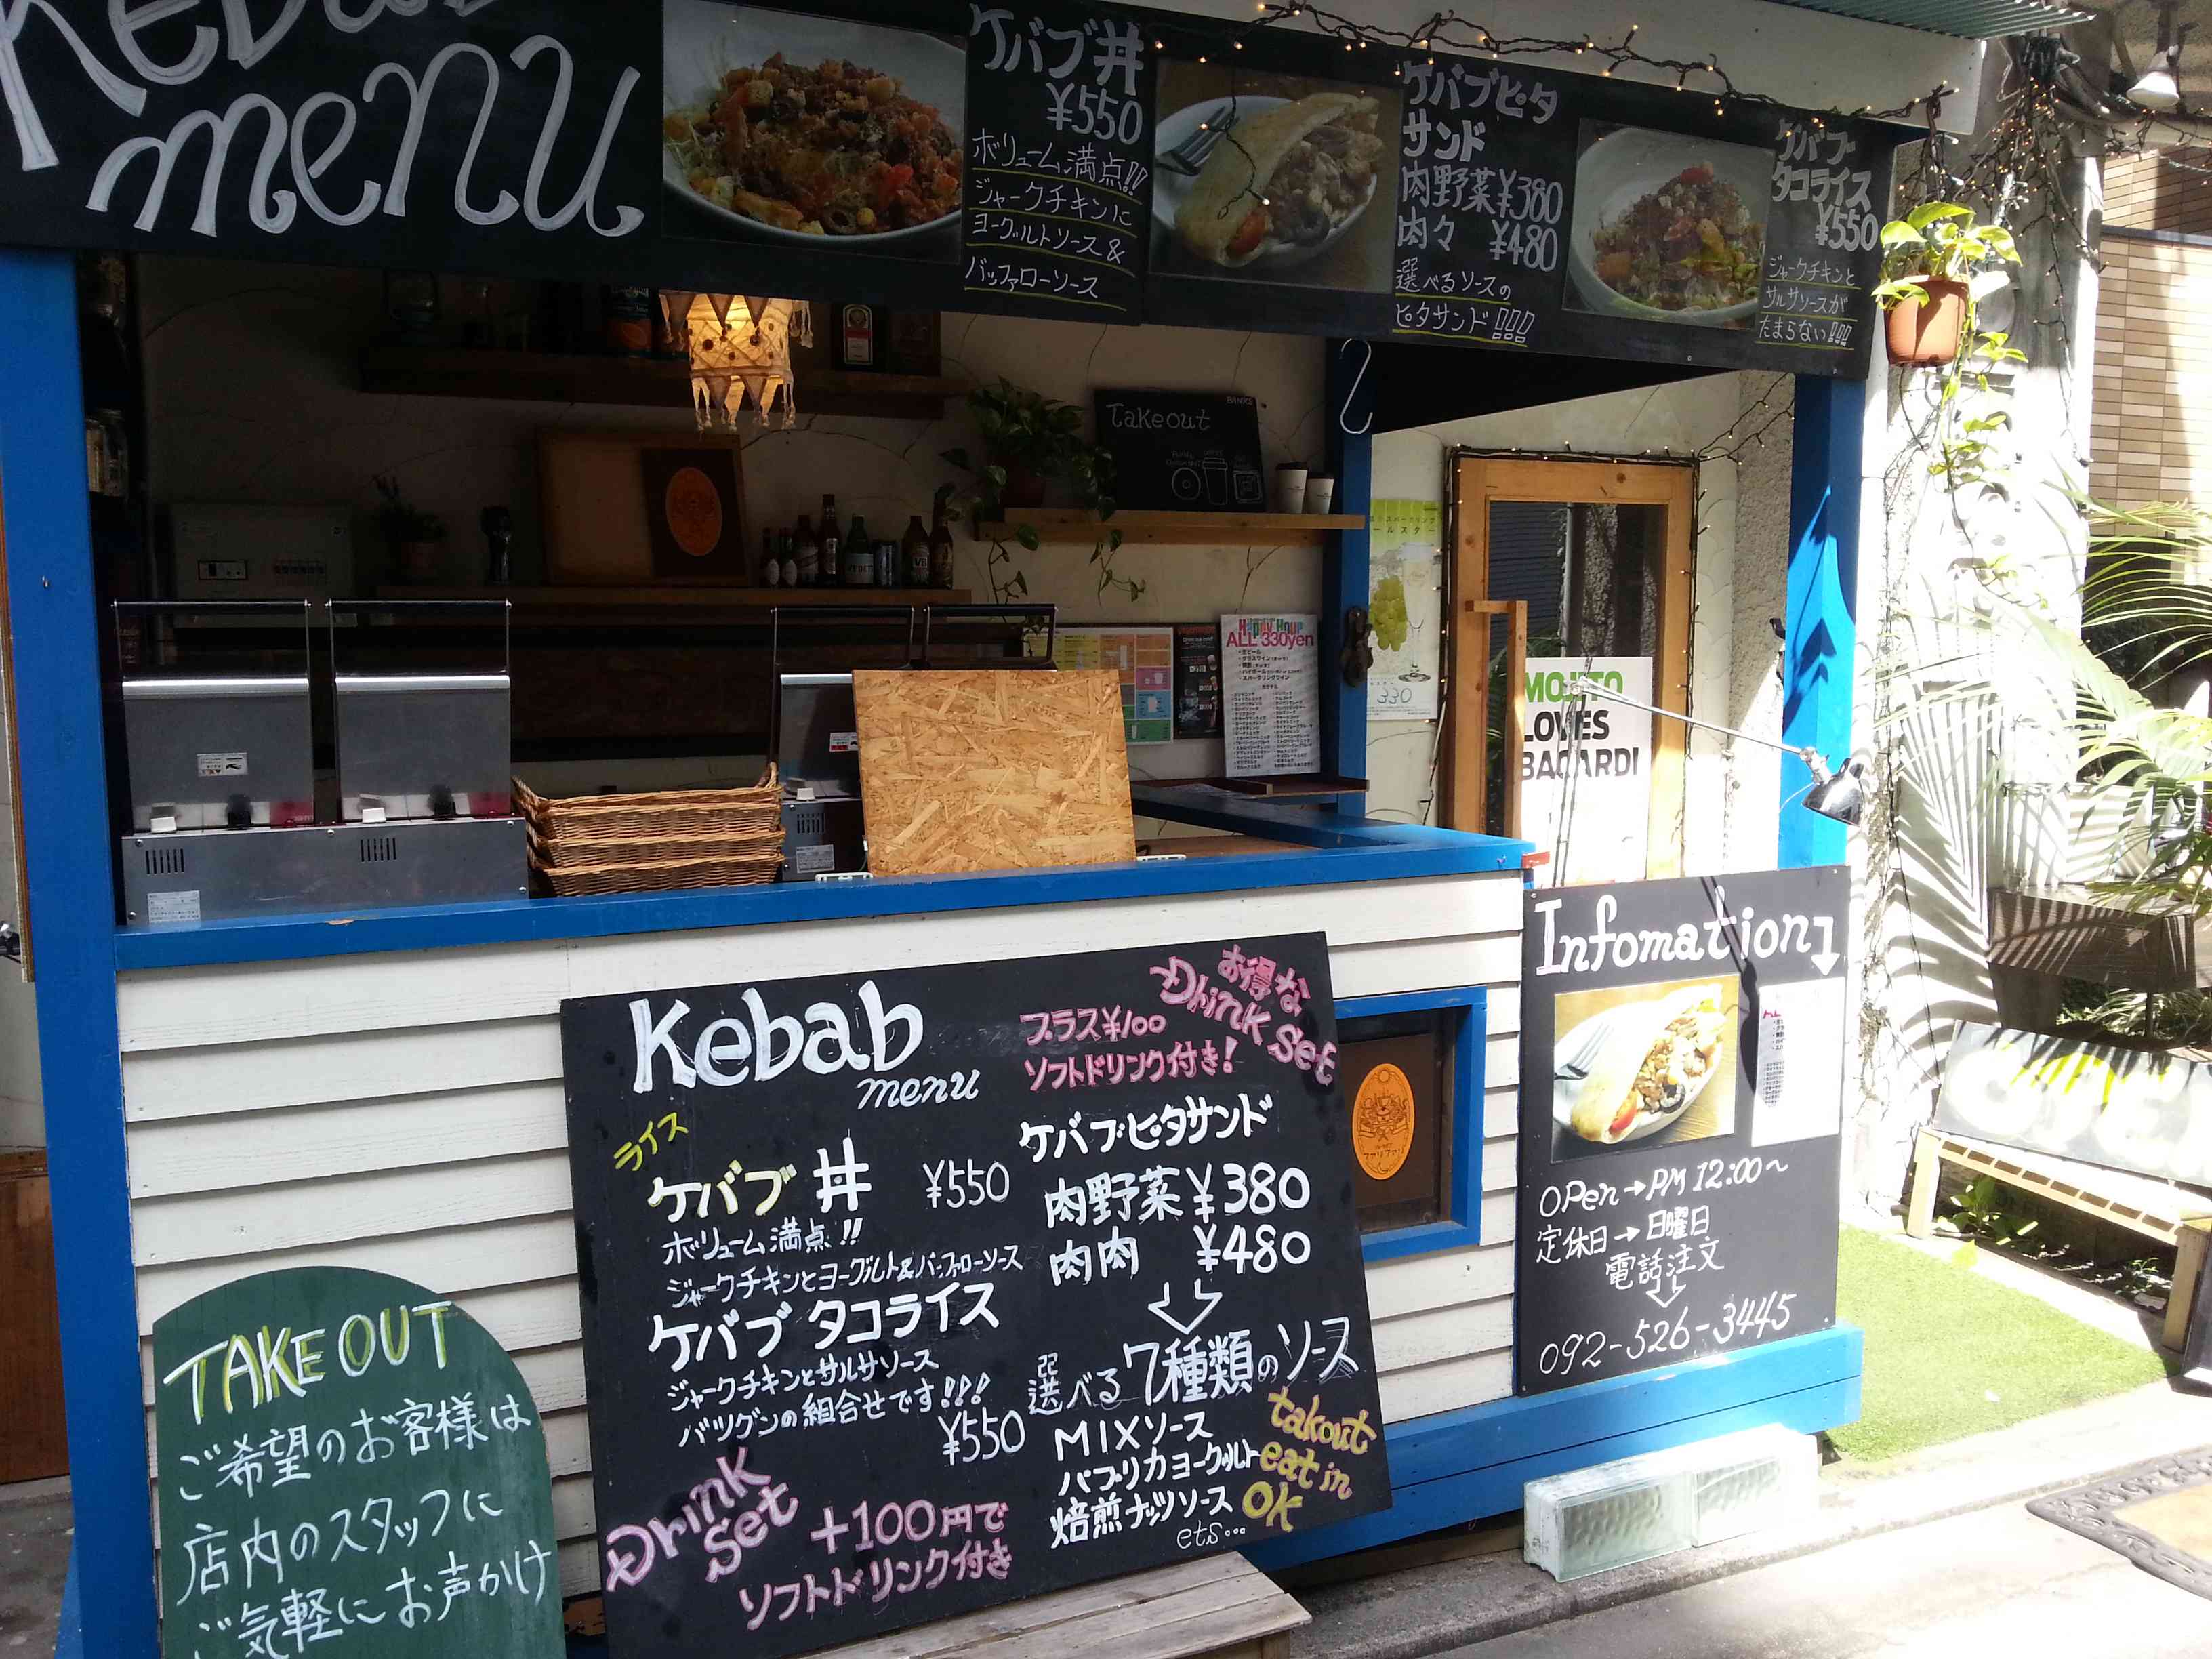 Kebab
menu
ケバブ丼
¥550
ボリューム満点!!
ジャークチキンに
ヨーグルトソース&
バッファローソース
ケバブピタ
サンド
肉野菜¥380
肉々 ¥480
選べるソースの
ピタサンド!!!
ケバブ
タコライス
¥550
ジャークチキンと
サルサソースが
たまらない!!!
Takeout
Happy Hour
ALL 330yen
330
MOJITO
LOVES
BACARDI
Infomation
OPen→PM 12:00~
定休日→日曜日
電話注文
092-526-3445
Kebab
menu
お得な
Drink set
プラス¥100
ソフトドリンク付き!
ライス
ケバブ丼 ¥550
ボリューム満点!!
ジャークチキンとヨーグルト&バッファローソース
ケバブ タコライス
ジャークチキンとサルサソース
バツグンの組合せです!!!
¥550
Drink
set
+100円で
ソフトドリンク付き
ケバブピタサンド
肉野菜¥380
肉肉 ¥480
選べる7種類のソース
MIXソース
パプリカヨーグルト
焙煎ナッツソース
ets...
takout
eat in
OK
TAKE OUT
ご希望のお客様は
店内のスタッフに
ご気軽にお声かけ